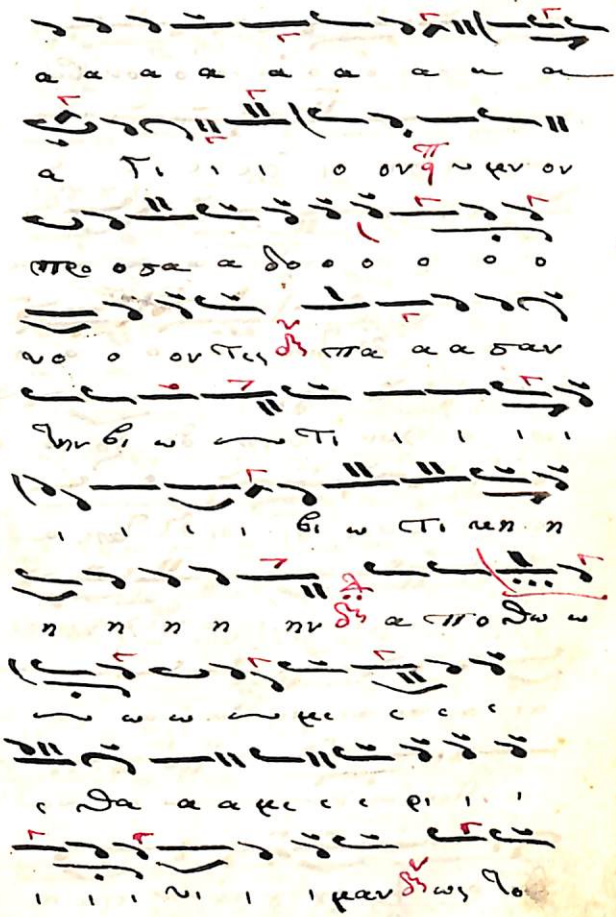 α α α α α α α α α
α γι ι ι ο ον υ μν ον
προ ο σα α δο ο ο ο ο ο
νο ο ον τες πα α α σαν
την βι ω τι ι ι ι ι
ι ι ι ι βι ω τι κη η
η η η η ην α πο θω ω
ω ω με ε ε ε
ε θα α α με ε ε ρι ι ι
ι ι ι χι ι ι ι μναν ως το